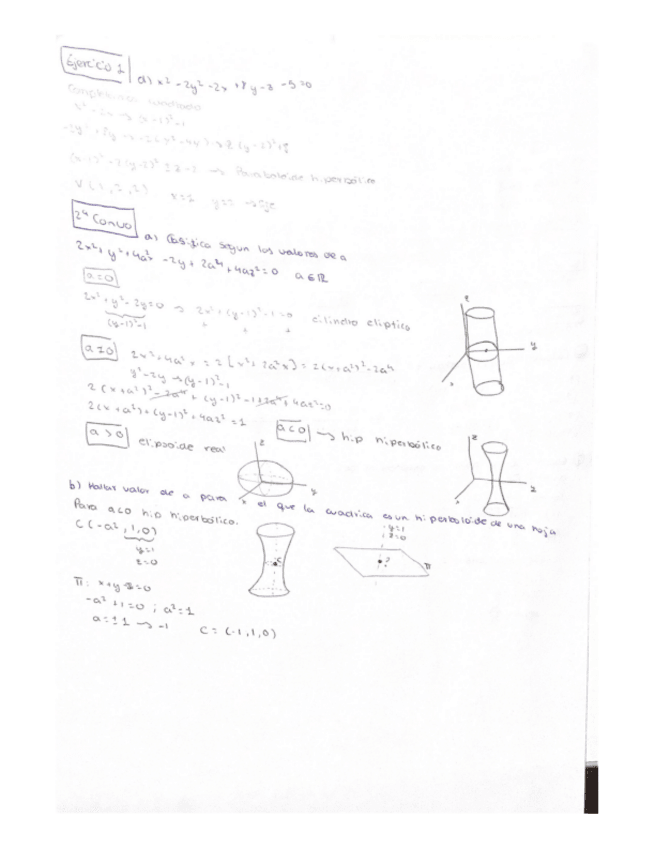 Ejercicio 1
a) x² - 2y² - 2x + 8y - z - 5 = 0
Completamos cuadrados
-2y² + 8y → -2(y² - 4y) → 2(y-2)² + 8
→ Paraboloide hiperbólico
2ª Convo
a) Clasifica segun los valores de a
2x² + y² + 4a²x - 2y + 2a⁴ + 4az² = 0 a ∈ ℝ
a = 0
2x² + y² - 2y = 0 → 2x² + (y-1)² - 1 = 0 cilindro eliptico
(y-1)² - 1
+ + +
z
y
x
a ≠ 0
2x² + 4a²x = 2[x² + 2a²x] = 2(x+a²)² - 2a⁴
y² - 2y → (y-1)² - 1
2(x+a²)² - 2a⁴ + (y-1)² - 1 + 2a⁴ + 4az² = 0
2(x+a²) + (y-1)² + 4az² = 1
a > 0 elipsoide real
z
y
x
a < 0 → hip hiperbólico
z
x
b) Hallar valor de a para el que la cuadrica es un hiperboloide de una hoja
Para a<0 hip hiperbólico.
C(-a², 1, 0)
y=1
z=0
C
y=1
z=0
π
π: x+y = 0
-a² + 1 = 0 ; a² = 1
a = ±1 → -1 C = (-1, 1, 0)